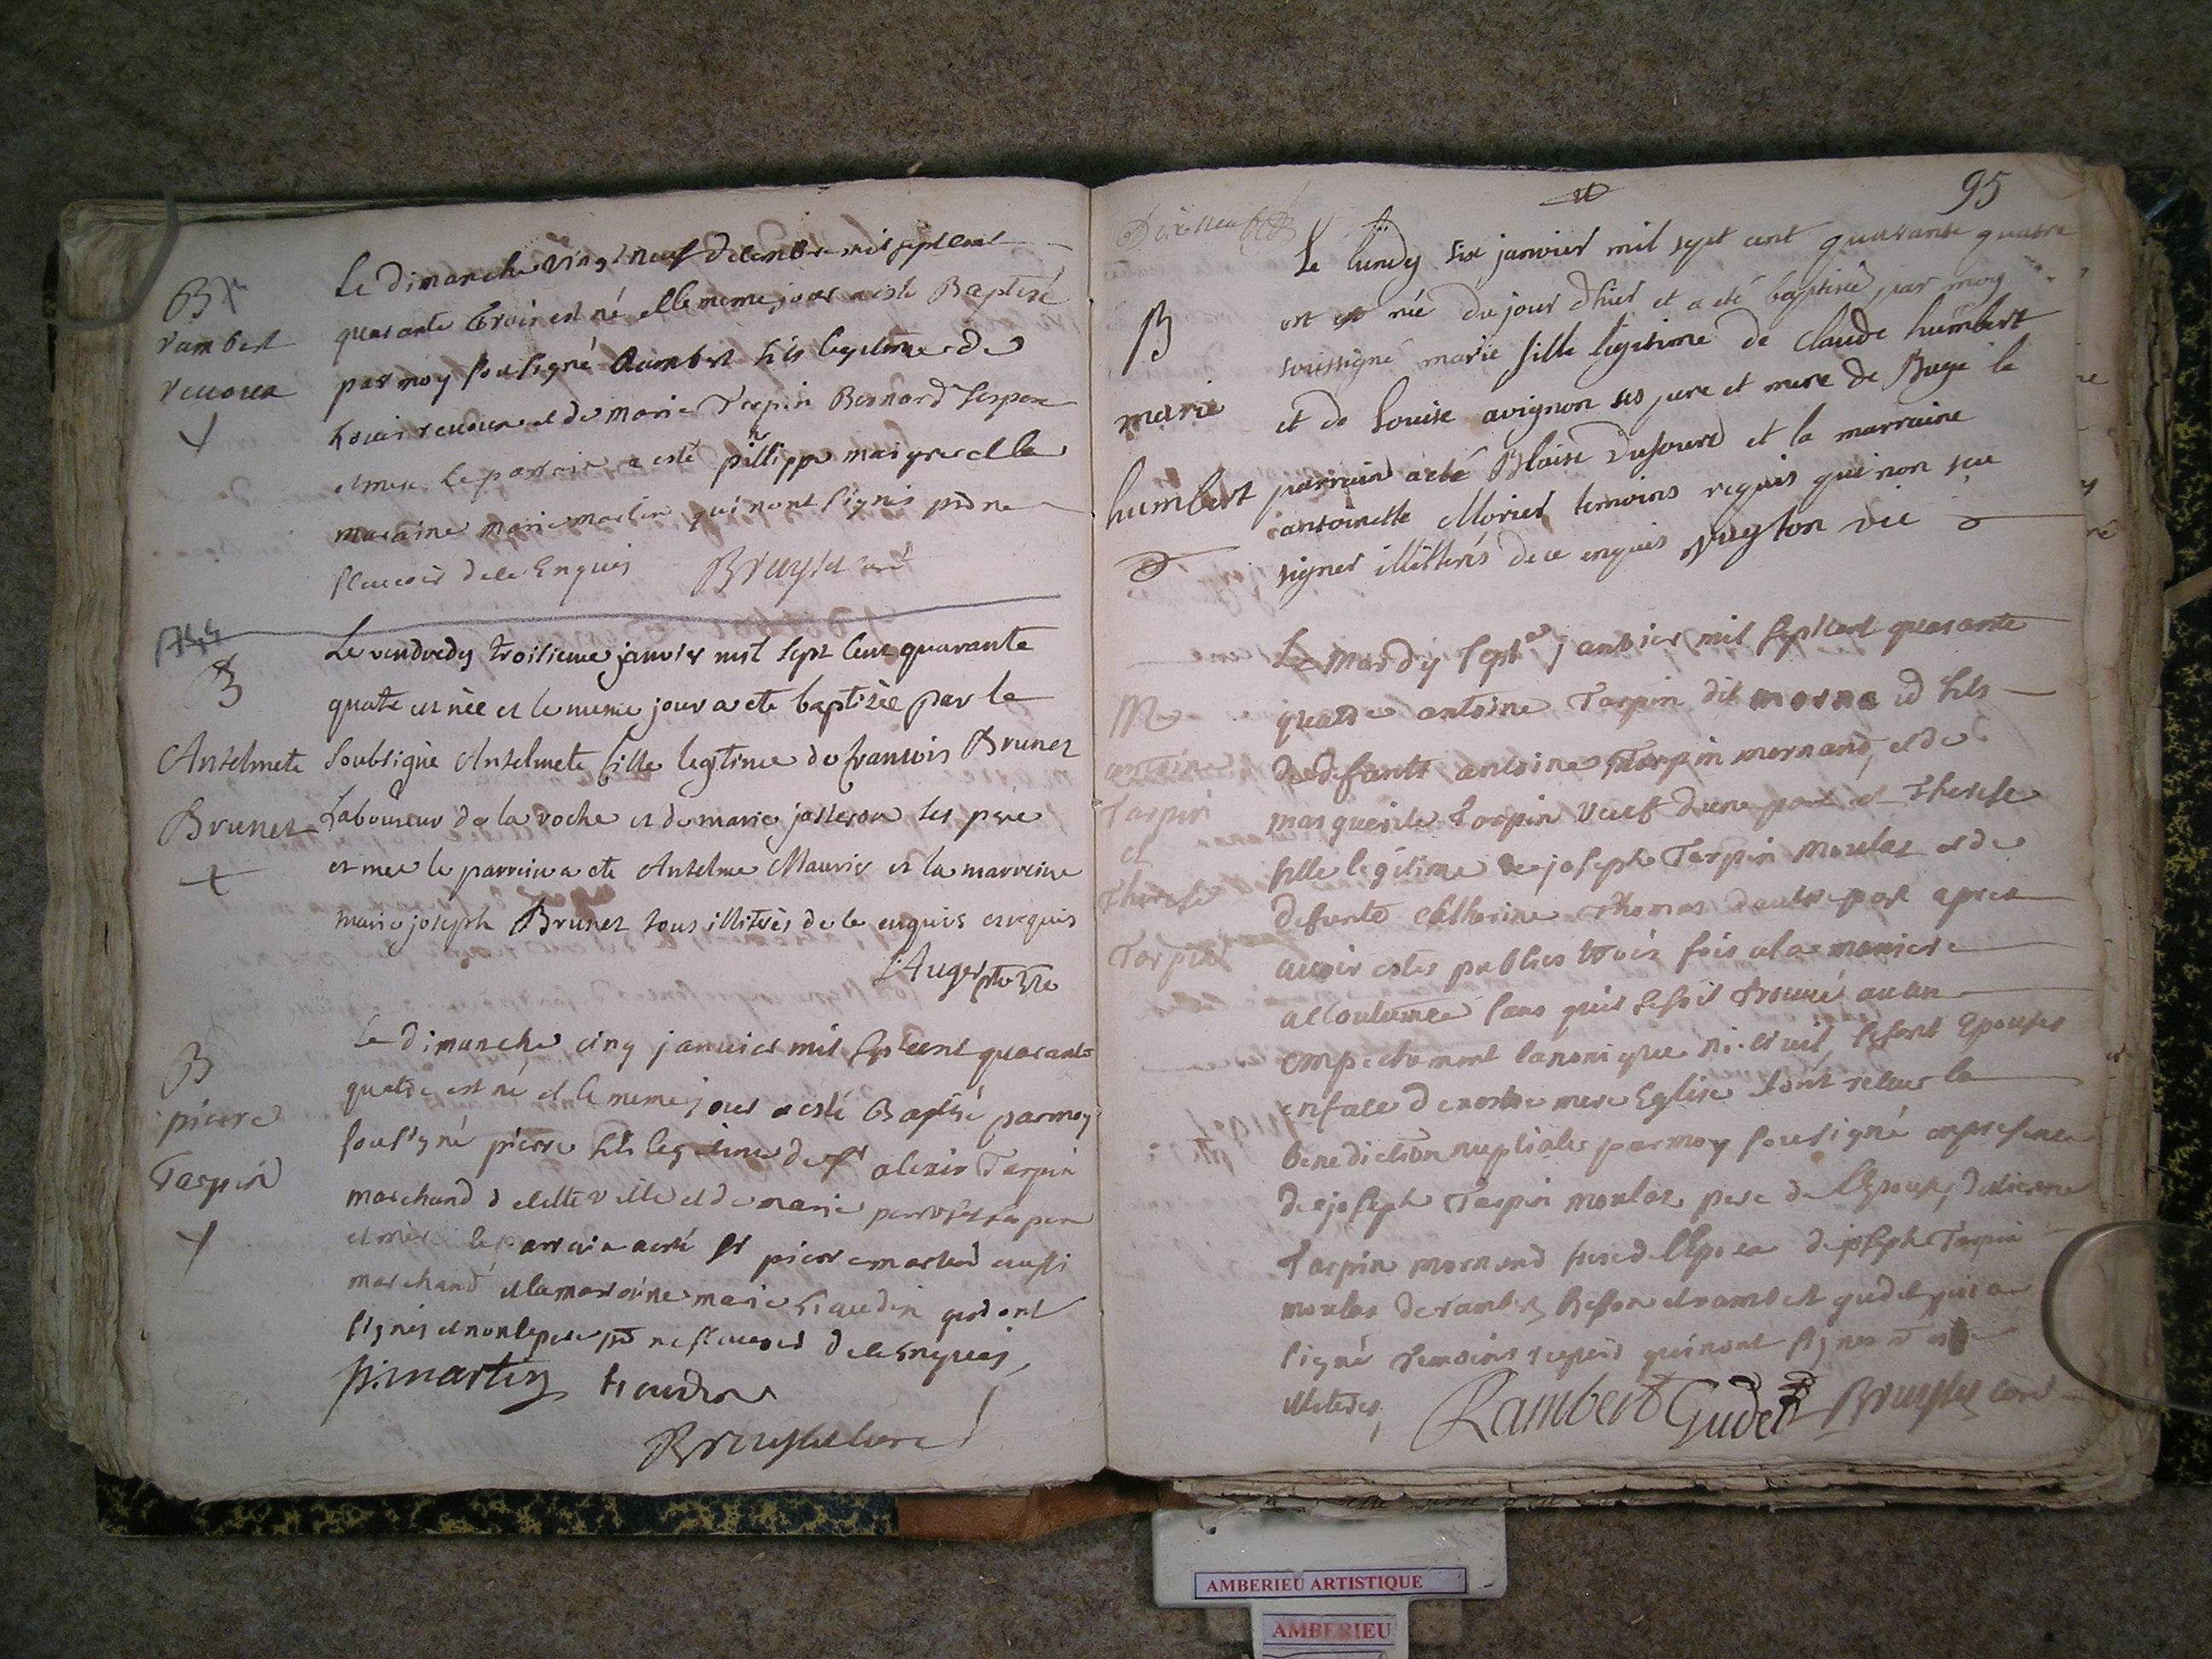 B
rambert
Le dimanche vingt neuf decembre mil sept cent
quarante trois est né et le meme jour a esté Baptisé
par moy sousigné Rambert fils legitime de
et de marie Tarpin
et mere le parrain a esté phillippe maigre et la
maraine marie martin qui n'ont signés pour ne
scavoir de ce Enquis Bruyset curé
1744
B
Antelmete
Brunet
Le vendredy troisieme janvier mil sept cent quarante
quatre est née et le meme jour a ete baptisée par le
soubsigné Antelmete fille legitime de francois Brunet
laboureur de la roche et de marie josseron ses père
et mere le parrein a ete Antelme Maurier et la marreine
marie joseph Brunet tous illiterés de ce enquis et requis
Auger
B
pierre
Tarpin
Le dimanche cinq janvier mil sept cent quarante
quatre est né et le meme jour a esté Baptisé par moy
sousigné pierre fils legitime de sr alexis Tarpin
marchand de cette ville et de marie
et mère le parrain a esté sr pierre martin aussi
marchand et la maraine marie qui ont
signés et non le pere pour ne scavoir de ce Enquis
p. martin
Bruyset curé
95
B
marie
humbert
Le lundy six janvier mil sept cent quarante quatre
est née du jour d'hier et a eté baptisée par moy
soussigné marie fille legitime de Claude humbert
et de Louise avignon ses pere et mere de Buge le
parrain a eté Blaise Dufour et la marraine
antoinette Morier temoins requis qui non sçu
signer illitterés de ce enquis vic
M
antoine
Tarpin
et
Therese
Tarpin
Le Mardy sept janvier mil sept cent quarante
quatre antoine Tarpin dit fils
de defunts antoine Tarpin mornand et de
marguerite Tarpin veuf d'une part et Therese
fille legitime de joseph Tarpin moulas et de
defunte Catherine Thomas d'autre part apres
avoir estés publiés trois fois a la maniere
accoutumée sans qu'il se soit trouvé aucun
empechement canonique ni civil se sont Epousés
en face de nostre mere Eglise sont receus la
benediction nuptiale par moy sousigné en presence
de joseph Tarpin moulas pere de l'Epouse,
Tarpin mornand frere de l'Epoux de joseph Tarpin
moulas de rambert Besson et rambert gudet qui a
signé temoins requis qui n'ont signés
illiterés, Rambert Gudet Bruyset curé
AMBERIEU ARTISTIQUE
AMBERIEU